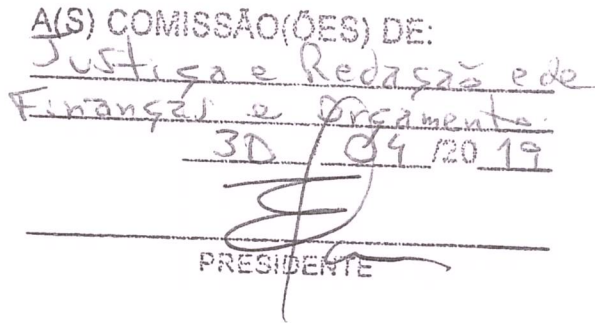 A(S) COMISSÃO(ÕES) DE:
Justiça e Redação e de
Finanças e Orçamento.
30 04 /20 19
PRESIDENTE